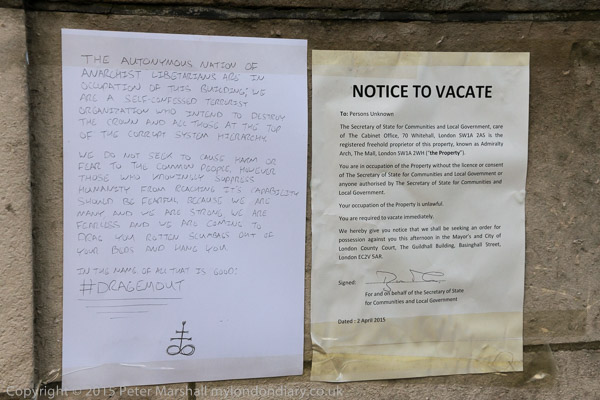 THE AUTONYMOUS NATION OF
ANARCHIST LIBETARIANS ARE IN
OCCUPATION OF THIS BUILDING; WE
ARE A SELF-CONFESSED TERRORIST
ORGANIZATION WHO INTEND TO DESTROY
THE CROWN AND ALL THOSE AT THE TOP
OF THE CORRUPT SYSTEM HIERARCHY.
WE DO NOT SEEK TO CAUSE HARM OR
FEAR TO THE COMMON PEOPLE, HOWEVER
THOSE WHO KNOWINGLY SUPPRESS
HUMANITY FROM REACHING IT'S CAPABILITY
SHOULD BE FEARFUL BECAUSE WE ARE
MANY AND WE ARE STRONG, WE ARE
FEARLESS AND WE ARE COMING TO
DRAG YOUR ROTTEN SCUMBAGS OUT OF
YOUR BEDS AND HANG YOU.
IN THE NAME OF ALL THAT IS GOOD!
#DRAGEMOUT
NOTICE TO VACATE
To: Persons Unknown
The Secretary of State for Communities and Local Government, care
of The Cabinet Office, 70 Whitehall, London SW1A 2AS is the
registered freehold proprietor of this property, known as Admiralty
Arch, The Mall, London SW1A 2WH ("the Property").
You are in occupation of the Property without the licence or consent
of The Secretary of State for Communities and Local Government or
anyone authorised by The Secretary of State for Communities and
Local Government.
Your occupation of the Property is unlawful.
You are required to vacate immediately.
We hereby give you notice that we shall be seeking an order for
possession against you this afternoon in the Mayor's and City of
London County Court, The Guildhall Building, Basinghall Street,
London EC2V 5AR.
Signed:
For and on behalf of the Secretary of State
for Communities and Local Government
Dated : 2 April 2015
Copyright © 2015 Peter Marshall mylondondiary.co.uk